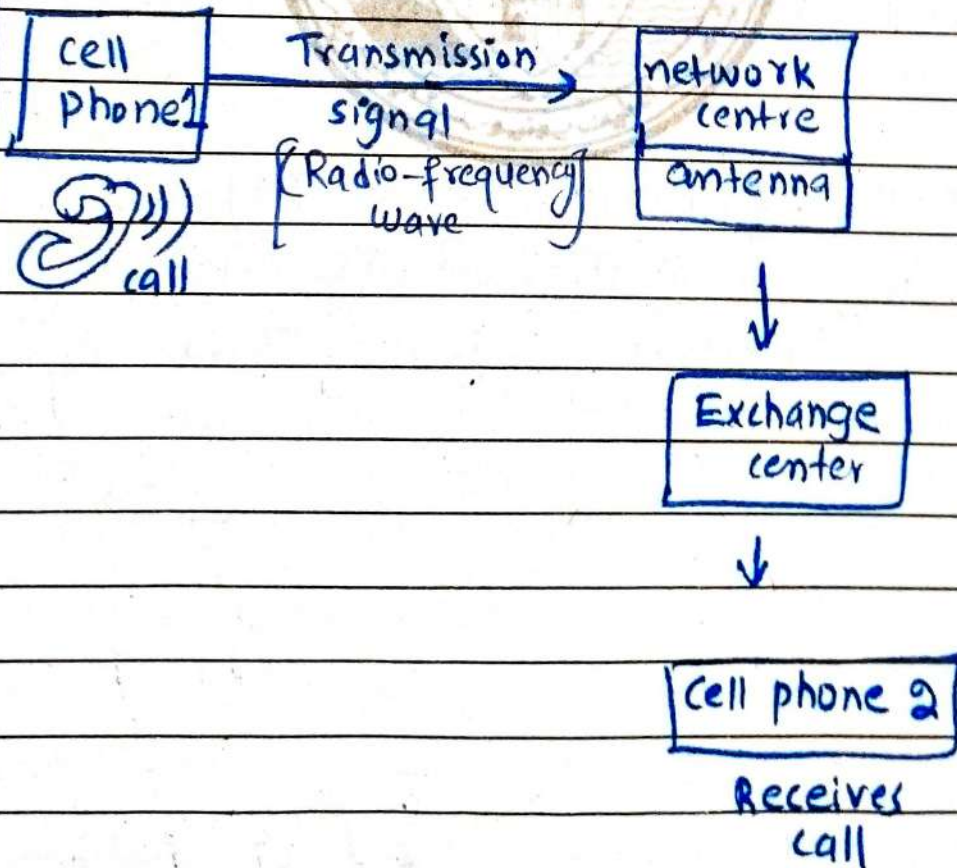 cell
phone1
Transmission
signal
[Radio-frequency
wave]
call
network
centre
antenna
Exchange
center
Cell phone 2
Receives
call